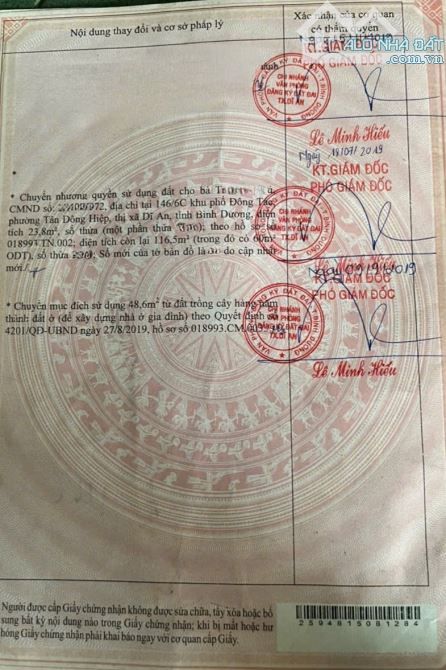 Nội dung thay đổi và cơ sở pháp lý
Xác nhận của cơ quan
có thẩm quyền
ALO NHÀ ĐẤT
.com.vn
KT. GIÁM ĐỐC
PHÓ GIÁM ĐỐC
CHI NHÁNH
VĂN PHÒNG
ĐĂNG KÝ ĐẤT ĐAI
TX.DĨ AN
Lê Minh Hiếu
Ngày 19/07/2019
KT.GIÁM ĐỐC
PHÓ GIÁM ĐỐC
* Chuyển nhượng quyền sử dụng đất cho bà
CMND số: địa chỉ tại 146/6C khu phố Đông Tác,
phường Tân Đông Hiệp, thị xã Dĩ An, tỉnh Bình Dương, diện
tích 23,8m², số thửa (một phần thửa); theo hồ sơ số
018993.TN.002; diện tích còn lại 116,5m² (trong đó có 60m²
ODT), số thửa Số mới của tờ bản đồ là do cập nhật
mới./.
Lê Minh Hiếu
Ngày 09/9/2019
KT.GIÁM ĐỐC
PHÓ GIÁM ĐỐC
* Chuyển mục đích sử dụng 48,6m² từ đất trồng cây hàng năm
thành đất ở (để xây dựng nhà ở gia đình) theo Quyết định số
4201/QĐ-UBND ngày 27/8/2019, hồ sơ số 018993.CM.003
CHI NHÁNH
VĂN PHÒNG
ĐĂNG KÝ ĐẤT ĐAI
TX.DĨ AN
Lê Minh Hiếu
Người được cấp Giấy chứng nhận không được sửa chữa, tẩy xóa hoặc bổ
sung bất kỳ nội dung nào trong Giấy chứng nhận; khi bị mất hoặc hư
hỏng Giấy chứng nhận phải khai báo ngay với cơ quan cấp Giấy.
2594815081284